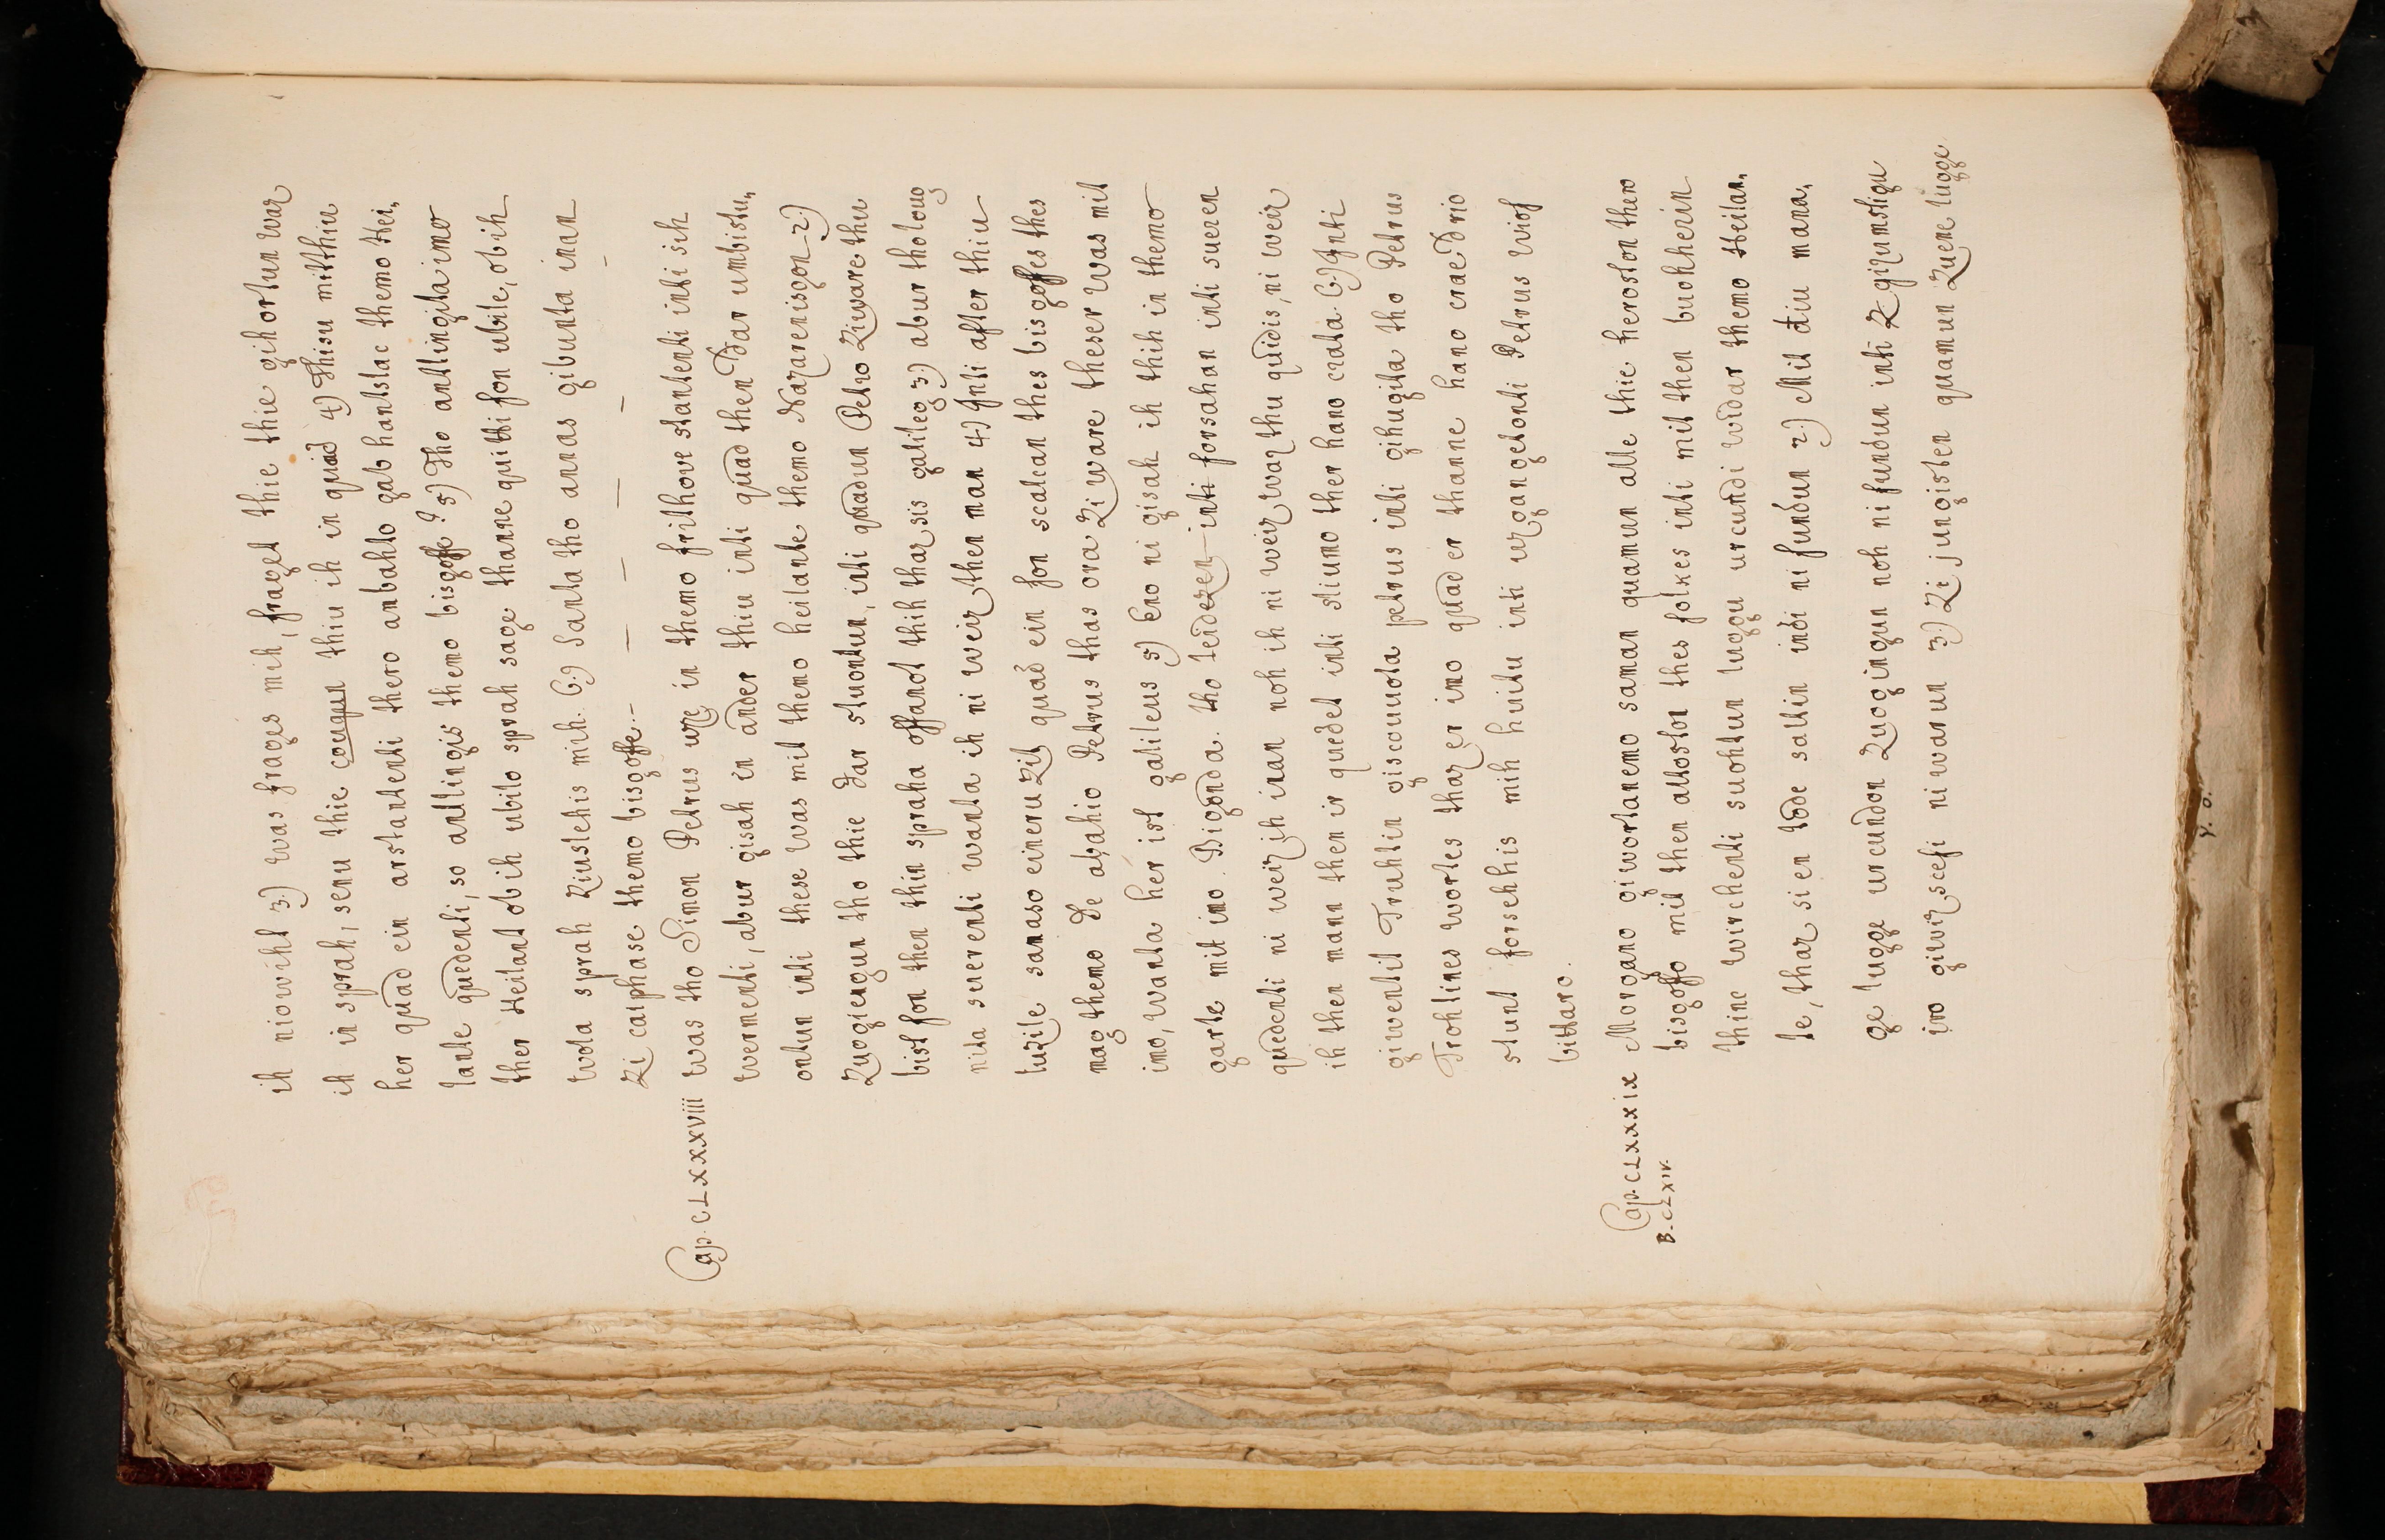 ih niowiht 3.) was frages mih, fraget thie thie gihortun waz
ih in sprah, senu thie cougun thiu ih in quad 4) Thisu mitthiu
her quad ein arstantenti thero anbahto gab hantslac themo Hei„
lante quedenti, so antlingis themo bisgoffe? 5) Tho antlingita imo
ther Heilant obih ubilo sprah sage thanne quitti fon ubile, obih
wola sprah ziuslehis mih. 6.) Santa tho annas gibunta inan
zi caiphase themo bisgoffe.- — — — — -
Cap. CLXXXVIII was tho Simon Petrus uze in themo frithove stantenti inti sih
wermenti, abur gisah in ander thiu inti quad then dar umbistu„
ontun inti these was mit themo heilante themo Nazarenisgon 2.)
Zuogiengun tho thie dar stuontun, inti quadun Petro Ziware thu
bist fon then thin spraha offanot thih thaz sis galileo 3) abur tholoug
nita suerenti wanta ih ni weiz then man 4) Inti after thiu
luzile sanaso eineru zit quad ein fon scalcan thes bisgoffes thes
mag themo de abahio Petrus thas ora Zi ware theser was mit
imo, wanta her ist galileus 5) Eno ni gisah ih thih in themo
garte mit imo. Bigonda tho leidezen inti forsahan inti sueren
quedenti ni weiz ih inan noh ih ni weiz waz thu quidis, ni weiz
ih then mann then ir quedet inti sliumo ther hano crata. 6.) Inti
giwentit Truhtin giscouuota petrus inti gihugita tho Petrus
Trohtines wortes thaz er imo quad er thanne hano crae drio
stunt forsehhis mih huilu inti uzgangelonti Petrus wiof
bittaro.
Cap. CLXXXIX Morgano giwortanemo saman quamun alle thie heroston thero
B. CLXIV. bisgoffo mit then altoston thes folkes inti mit then buohherin
thine wirchenti suohtun luggu urcundi widar themo Heilan„
te, thaz sien tode saltin indi ni fundun 2.) Mit diu mana„
ge lugge urcundon Zuogingun noh ni fundun inti Z gizumstigu
iro giwiz scefi ni warun 3.) Zi jungisten quamun Zuene lugge